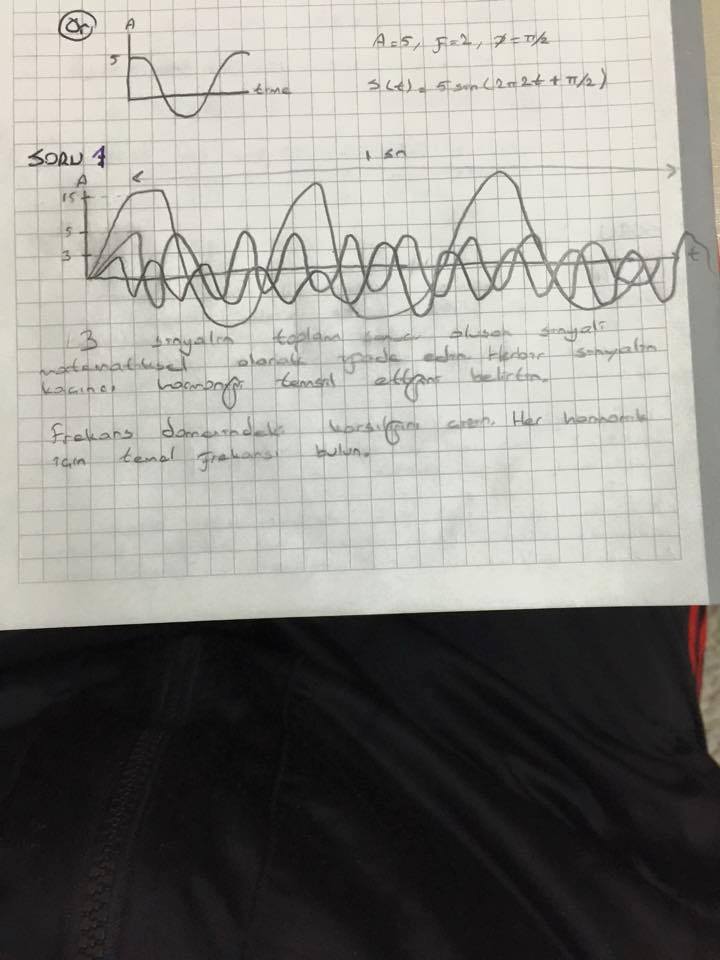 Ör
A
A=5, f=2, φ=π/2
5
time
S(t) = 5 sin(2π2t + π/2)
SORU 1
1 sn
A
15
5
3
t
3 sinyalin toplamı oluşan sinyali
matematiksel olarak ifade edin Herbir sinyalin
kaçıncı harmoniği temsil ettiğini belirtin.
Frekans domainindeki karşılığını çizin. Her harmonik
için temel frekansı bulun.